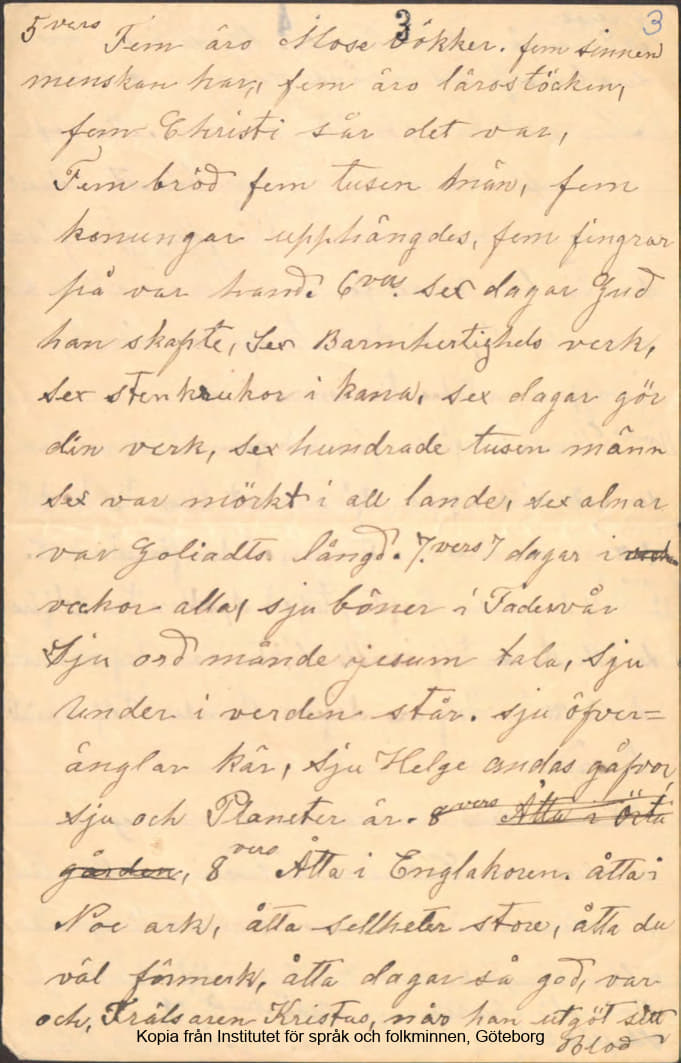 3 3
5 vers Fem äro Mose bökker. fem sinnen
menskan har, fem äro lärostöcken,
fem Christi sår det var,
Fem bröd fem tusen män, fem
konungar upphängdes, fem fingrar
på var hand. 6 vers. Sex dagar Gud
han skapte, Sex Barmhertighets verk,
Sex stenkrukor i kana, sex dagar gör
din verk, sex hundrade tusen männ
Sex var mörkt i all lande, sex alnar
var Goliadts längd. 7. vers 7 dagar i
veckor alla, sju böner i Fadervår
Sju ord månde jesum tala, Sju
Under i verden står. sju öfver=
änglar kär, Sju Helge andas gåfvor
sju och Planeter är. 8 vers Åtta i Örta
gården, 8 vers Åtta i Englakoren. åtta i
Noe ark, åtta sellheter store, åtta du
väl förmerk, åtta dagar så god, var
och, Frälsaren Kristus, når han utgöt sitt
blod
Kopia från Institutet för språk och folkminnen, Göteborg